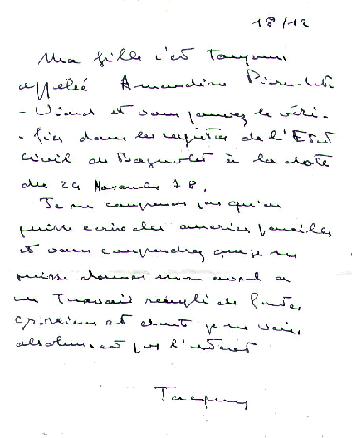 18/12
Ma fille s'est toujours
appelée Amandine
- Wiard et vous pouvez le véri-
- fier dans les registres de l'Etat
civil de Bagnolet à la date
du 29 Novembre 78.
Je ne comprends pas qu'on
puisse écrire des âneries pareilles
et vous comprendrez que je ne
puisse donner mon aval à
un travail rempli de fautes
grossières et dont je ne vois
absolument pas l'intérêt